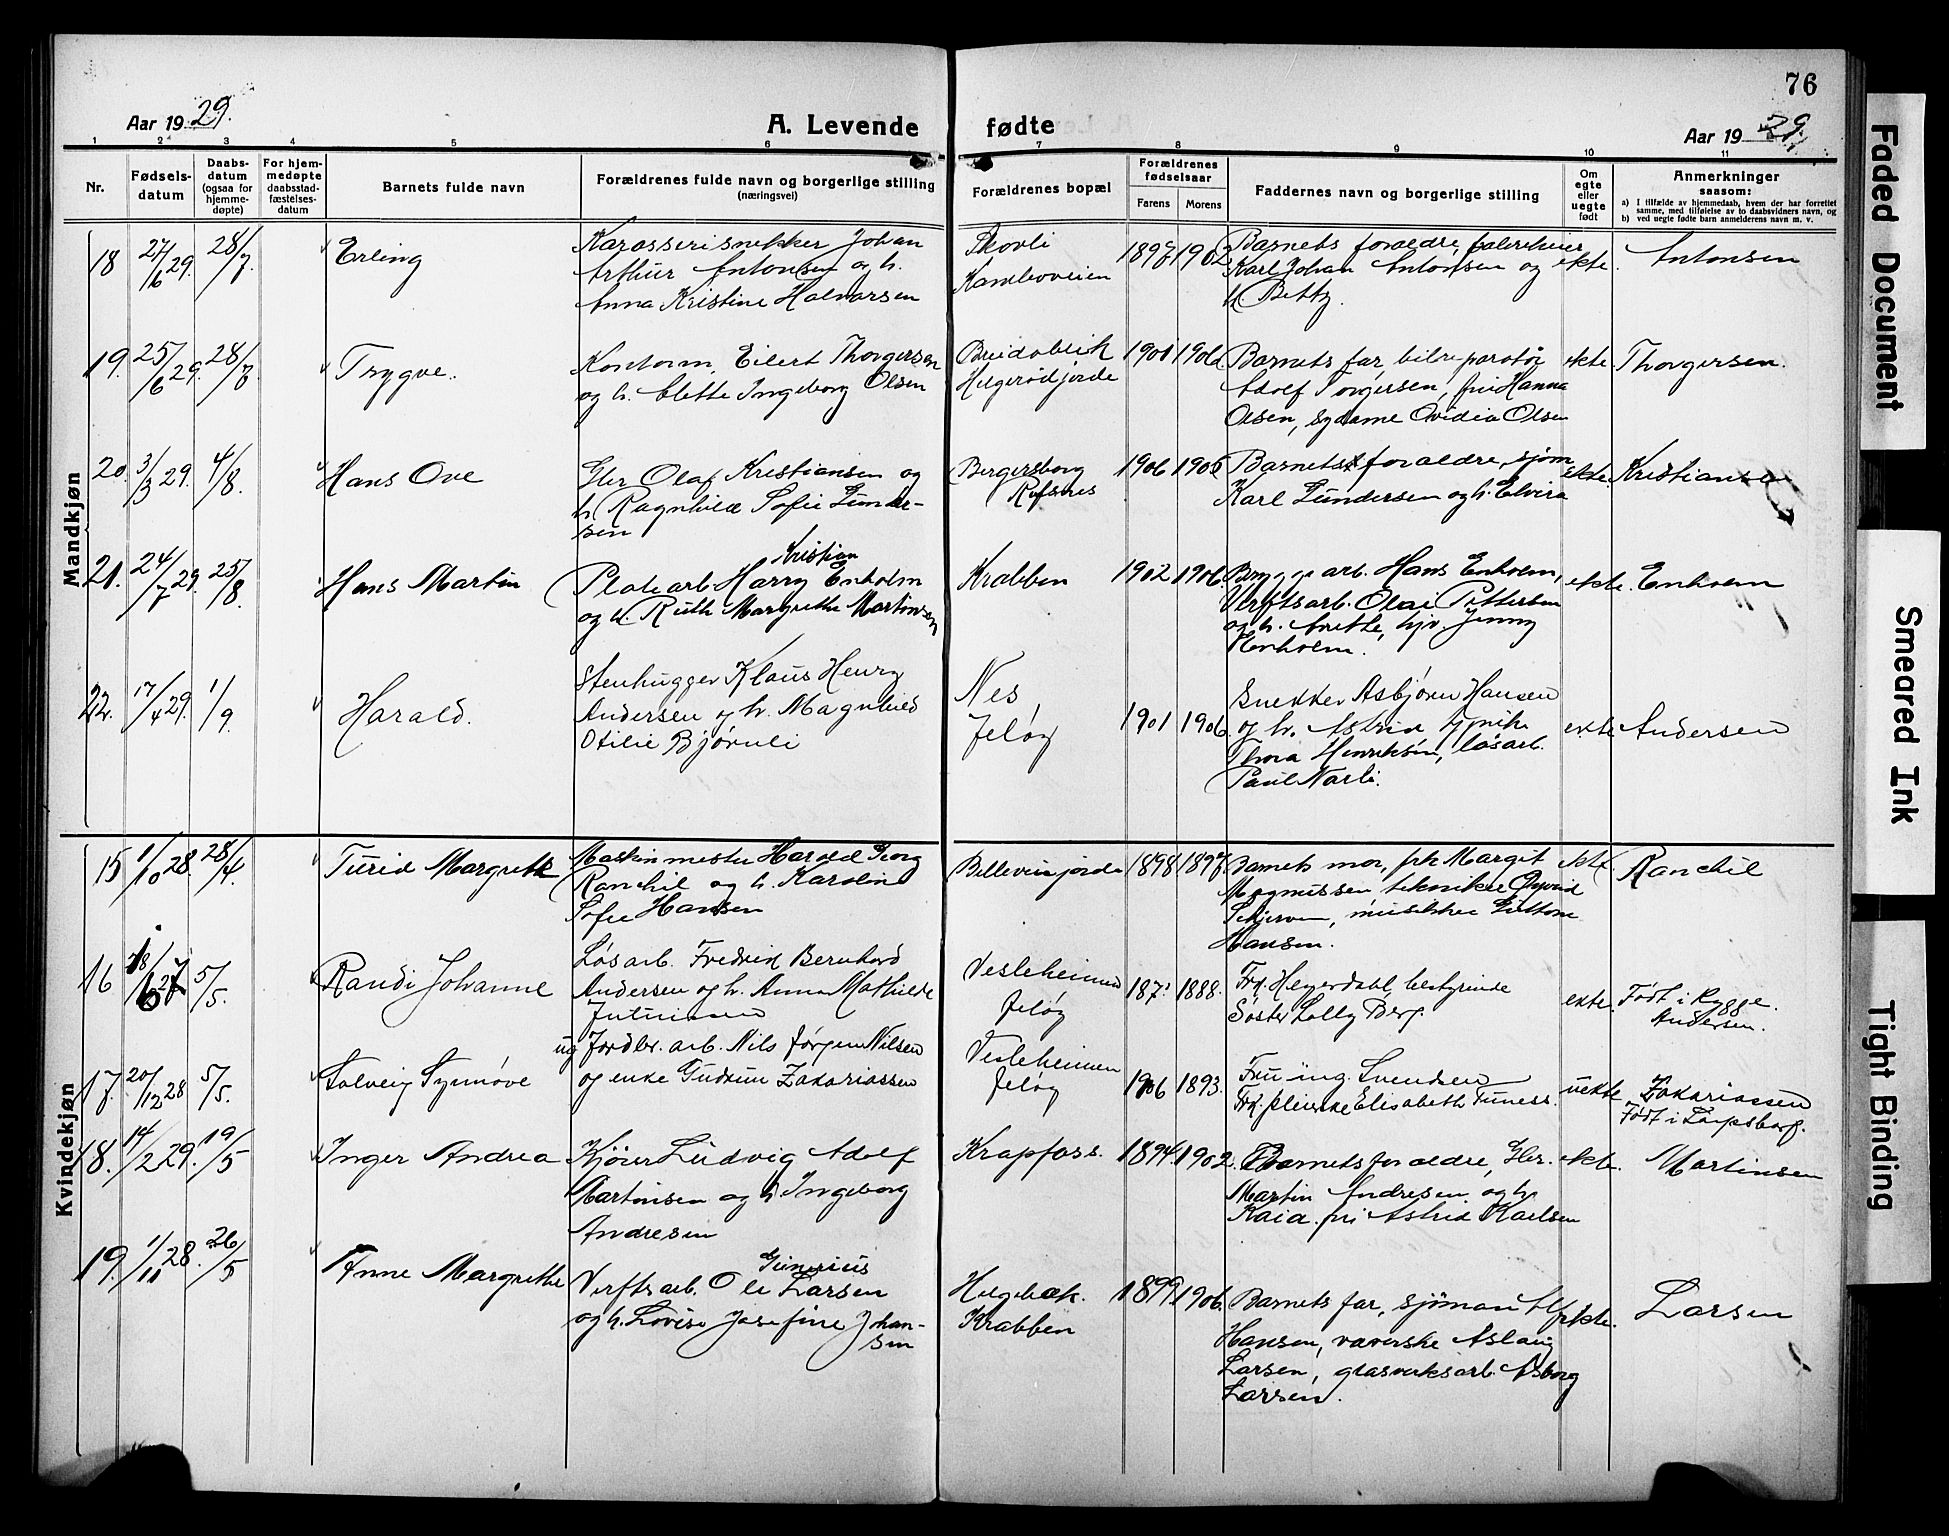 76
Aar 1929.
A. Levende fødte
Aar 1929.
1 2 3 4 5 6 7 8 9 10 11
Nr.
Fødsels-
datum
Daabs-
datum
(ogsaa for
hjemme-
døpte)
For hjem-
medøpte
daabsstad-
fæstelses-
datum
Barnets fulde navn
Forældrenes fulde navn og borgerlige stilling
(næringsvei)
Forældrenes bopæl
Forældrenes
fødselsaar
Farens
Morens
Faddernes navn og borgerlige stilling
Om
egte
eller
uegte
født
Anmerkninger
saasom:
a) I tilfælde av hjemmedaab, hvem der har forrettet
samme, med tilføielse av to daabsvidners navn, og
b) ved uegte fødte barn anmelderens navn m. v.
Mandkjøn
18 27/6 29. 28/7. Erling
Karosserisnekker Johan
Arthur Antonsen og h.
Anna Kristine Halvorsen
Skovli
Kamboveien
1902
Barnets foraeldre,
Karl Johan Antonsen og
h. Betty.
ekte. Antonsen
19. 25/6 29. 28/7 Trygve.
Kontorm. Eilert Thorgersen
og h. Olette Ingeborg Olsen
Breidablik
Helgerødjorde
1901 1906.
Barnets far, bilreparatør
Adolf Torgersen, frk Hanna
Olsen, sydame Ovidia Olsen
ekte Thorgersen.
20. 3/3 29. 4/8. Hans Ove
Gler Olaf Kristiansen og
h. Ragnhild Sofie Gunder-
sen
Bergersborg
Refsnes
1906 1905
Barnets foraeldre, sjøm
Karl Gundersen og h. Elvira
ekte. Kristiansen
21. 24/7 29. 25/8. Hans Martin
Kristian
Platearb. Harry Enholm
og h. Ruth Margrethe Martinsen
Krabben
1902 1906
Bryggearb. Hans Enholm,
Verftsarb. Olai Pettersen
og h. Anette, hjv. Jenny
Enholm.
ekte. Enholm
22. 17/4 29. 1/9. Harald.
Stenhugger Klaus Henry
Andersen og h. Magnhild
Otilie Bjørnli
Nes
Jeløy
1901 1906.
Snekker Asbjørn Hansen
og h. Astrid
Thora Henriksen, løsarb.
Paul Narli.
ekte Andersen
Kvindekjøn
15 1/10 28. 28/4. Turid Margrethe
Maskinmester Harald Georg
Ranchil og h. Karoline
Sofie Hansen
Bellevuejordet
1898 1897.
Barnets mor, frk Margit
Magnussen, tekniker Øyvind
Skjerven, musiker Guttorm
Hansen.
ekte Ranchil
16 18/6 27 5/5. Randi Johanne
Løsarb. Fredrik Bernhard
Andersen og h. Anna Mathilde
Vesleheimen
Jeløy
1871 1888.
Frk. Heyerdahl, bestyrinde
Søster Lolly Berg.
ekte. Født i Rygge.
Andersen.
17. 20/12 28 5/5. Solveig Synnøve
ug Jordbr. arb. Nils Jørgen Nilsen
og enke Gudrun Zakariassen
Vesleheimen
Jeløy
1906 1893.
Fru ing. Svendsen
Frk. pleierske Elisabeth Tuness.
uekte. Zakariassen
Født i Sarpsborg.
18. 14/2 29. 19/5 Inger Andrea
Kjører Ludvig Adolf
Martinsen og h. Ingeborg
Andresen
Krapfoss.
1894. 1902.
Barnets foraeldre, Gler.
Martin Andresen og h.
Kaia. frk Astrid Karlsen
ekte. Martinsen
19. 1/11 28. 26/5 Anne Margrethe
Gunerius
Verftsarb. Ole Larsen
og h. Lovise Josefine Johan-
sen
Helgebak.
Krabben
1899. 1906.
Barnets far, sjømann
Hansen, væverske Aslaug
Larsen, glasverksarb. Asborg
Larsen.
ekte. Larsen
Faded Document
Smeared Ink
Tight Binding